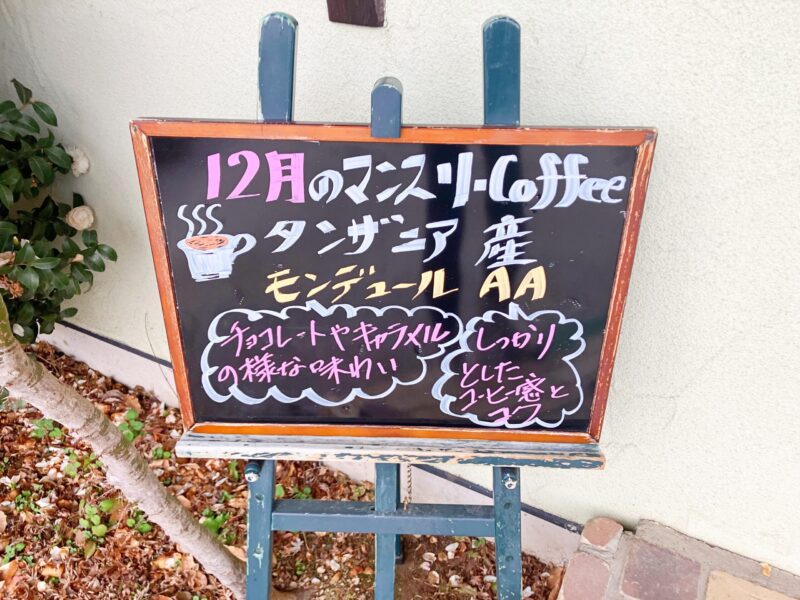 12月のマンスリーCoffee
タンザニア産
モンデュール AA
チョコレートやキャラメル
の様な味わい
しっかり
とした
コーヒー感と
コク